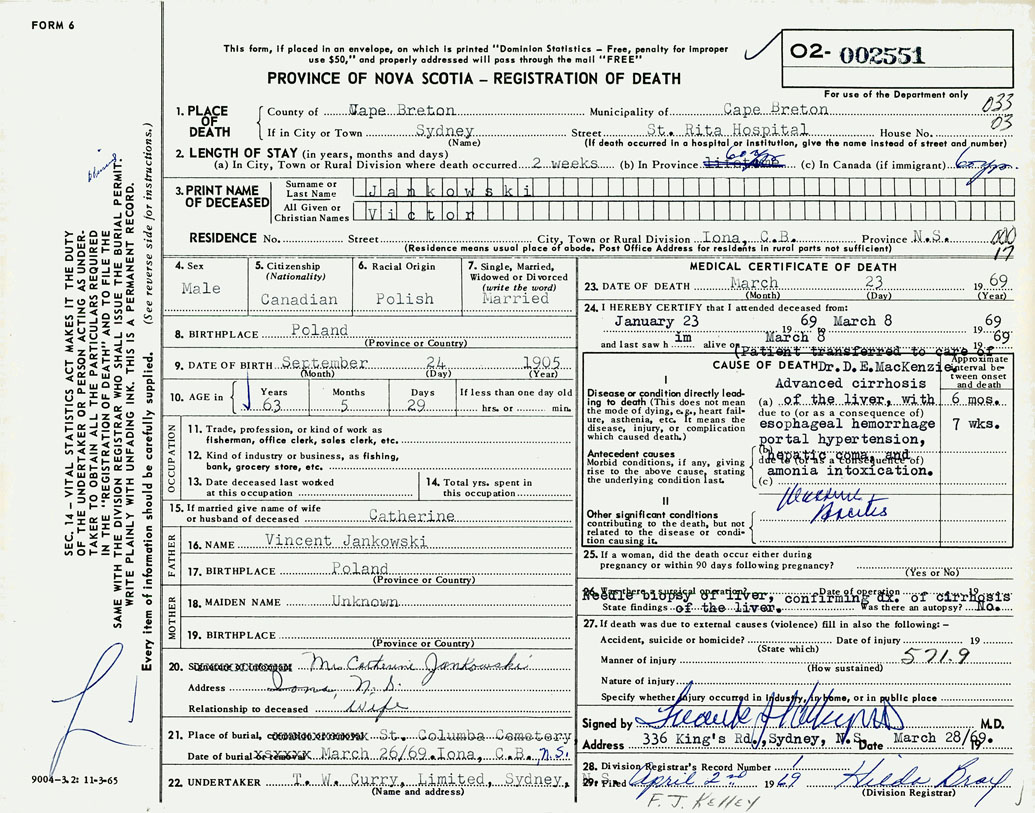 FORM 6
This form, if placed in an envelope, on which is printed "Dominion Statistics — Free, penalty for improper
use $50," and properly addressed will pass through the mail "FREE"
PROVINCE OF NOVA SCOTIA — REGISTRATION OF DEATH
02- 002551
For use of the Department only
033
03
1. PLACE OF DEATH
County of Cape Breton Municipality of Cape Breton
If in City or Town Sydney Street St. Rita Hospital House No.
(Name) (If death occurred in a hospital or institution, give the name instead of street and number)
2. LENGTH OF STAY (in years, months and days)
(a) In City, Town or Rural Division where death occurred 2 weeks (b) In Province lifetime 60 yrs (c) In Canada (if immigrant) 60 yrs.
3. PRINT NAME OF DECEASED
Surname or Last Name Jankowski
All Given or Christian Names Victor
RESIDENCE No. Street City, Town or Rural Division Iona, C.B. Province N.S.
(Residence means usual place of abode. Post Office Address for residents in rural parts not sufficient)
000
17
4. Sex
Male
5. Citizenship
(Nationality)
Canadian
6. Racial Origin
Polish
7. Single, Married,
Widowed or Divorced
(write the word)
Married
8. BIRTHPLACE Poland
(Province or Country)
9. DATE OF BIRTH September 24 1905
(Month) (Day) (Year)
10. AGE in
Years Months Days If less than one day old
63 5 29 hrs. or min.
OCCUPATION
11. Trade, profession, or kind of work as
fisherman, office clerk, sales clerk, etc.
12. Kind of industry or business, as fishing,
bank, grocery store, etc.
13. Date deceased last worked
at this occupation
14. Total yrs. spent in
this occupation
15. If married give name of wife
or husband of deceased Catherine
FATHER
16. NAME Vincent Jankowski
17. BIRTHPLACE Poland
(Province or Country)
MOTHER
18. MAIDEN NAME Unknown
19. BIRTHPLACE
(Province or Country)
20. Signature of Informant Mrs. Catherine Jankowski
Address Iona, N.S.
Relationship to deceased Wife
21. Place of burial, cremation or removal St. Columba Cemetery,
Date of burial or removal March 26/69. Iona, C.B. N.S.
22. UNDERTAKER T. W. Curry, Limited, Sydney, N.S.
(Name and address)
MEDICAL CERTIFICATE OF DEATH
23. DATE OF DEATH March 23 1969
(Month) (Day) (Year)
24. I HEREBY CERTIFY that I attended deceased from:
January 23 1969 March 8 1969
and last saw h im alive on March 8 1969
(Patient transferred to care of
Dr. D. E. MacKenzie
CAUSE OF DEATH
Approximate
interval be-
tween onset
and death
I
Disease or condition directly lead-
ing to death (This does not mean
the mode of dying, e.g., heart fail-
ure, asthenia, etc. It means the
disease, injury, or complication
which caused death.)
Antecedent causes
Morbid conditions, if any, giving
rise to the above cause, stating
the underlying condition last.
Advanced cirrhosis
(a) of the liver, with 6 mos.
due to (or as a consequence of)
esophageal hemorrhage 7 wks.
portal hypertension,
(b) hepatic coma, and
due to (or as a consequence of)
amonia intoxication.
(c)
II
Other significant conditions
contributing to the death, but not
related to the disease or condi-
tion causing it.
25. If a woman, did the death occur either during
pregnancy or within 90 days following pregnancy?
(Yes or No)
26. Was there a surgical operation? Date of operation 19
Needle biopsy of liver, confirming dx. of cirrhosis
State findings of the liver. Was there an autopsy? No.
27. If death was due to external causes (violence) fill in also the following:—
Accident, suicide or homicide? Date of injury 19
(State which)
Manner of injury 571.9
(How sustained)
Nature of injury
Specify whether injury occurred in industry, in home, or in public place
Signed by M.D.
Address 336 King's Rd., Sydney, N.S. Date March 28/69.
28. Division Registrar's Record Number 1
29. Filed April 2nd 1969 Hilda Bray
(Division Registrar)
F. J. Kelley
SEC. 14 – VITAL STATISTICS ACT MAKES IT THE DUTY
OF THE UNDERTAKER OR PERSON ACTING AS UNDER-
TAKER TO OBTAIN ALL THE PARTICULARS REQUIRED
IN THE "REGISTRATION OF DEATH" AND TO FILE THE
SAME WITH THE DIVISION REGISTRAR WHO SHALL ISSUE THE BURIAL PERMIT.
WRITE PLAINLY WITH UNFADING INK. THIS IS A PERMANENT RECORD.
Every item of information should be carefully supplied. (See reverse side for instructions.)
9004-3.2: 11-3-65